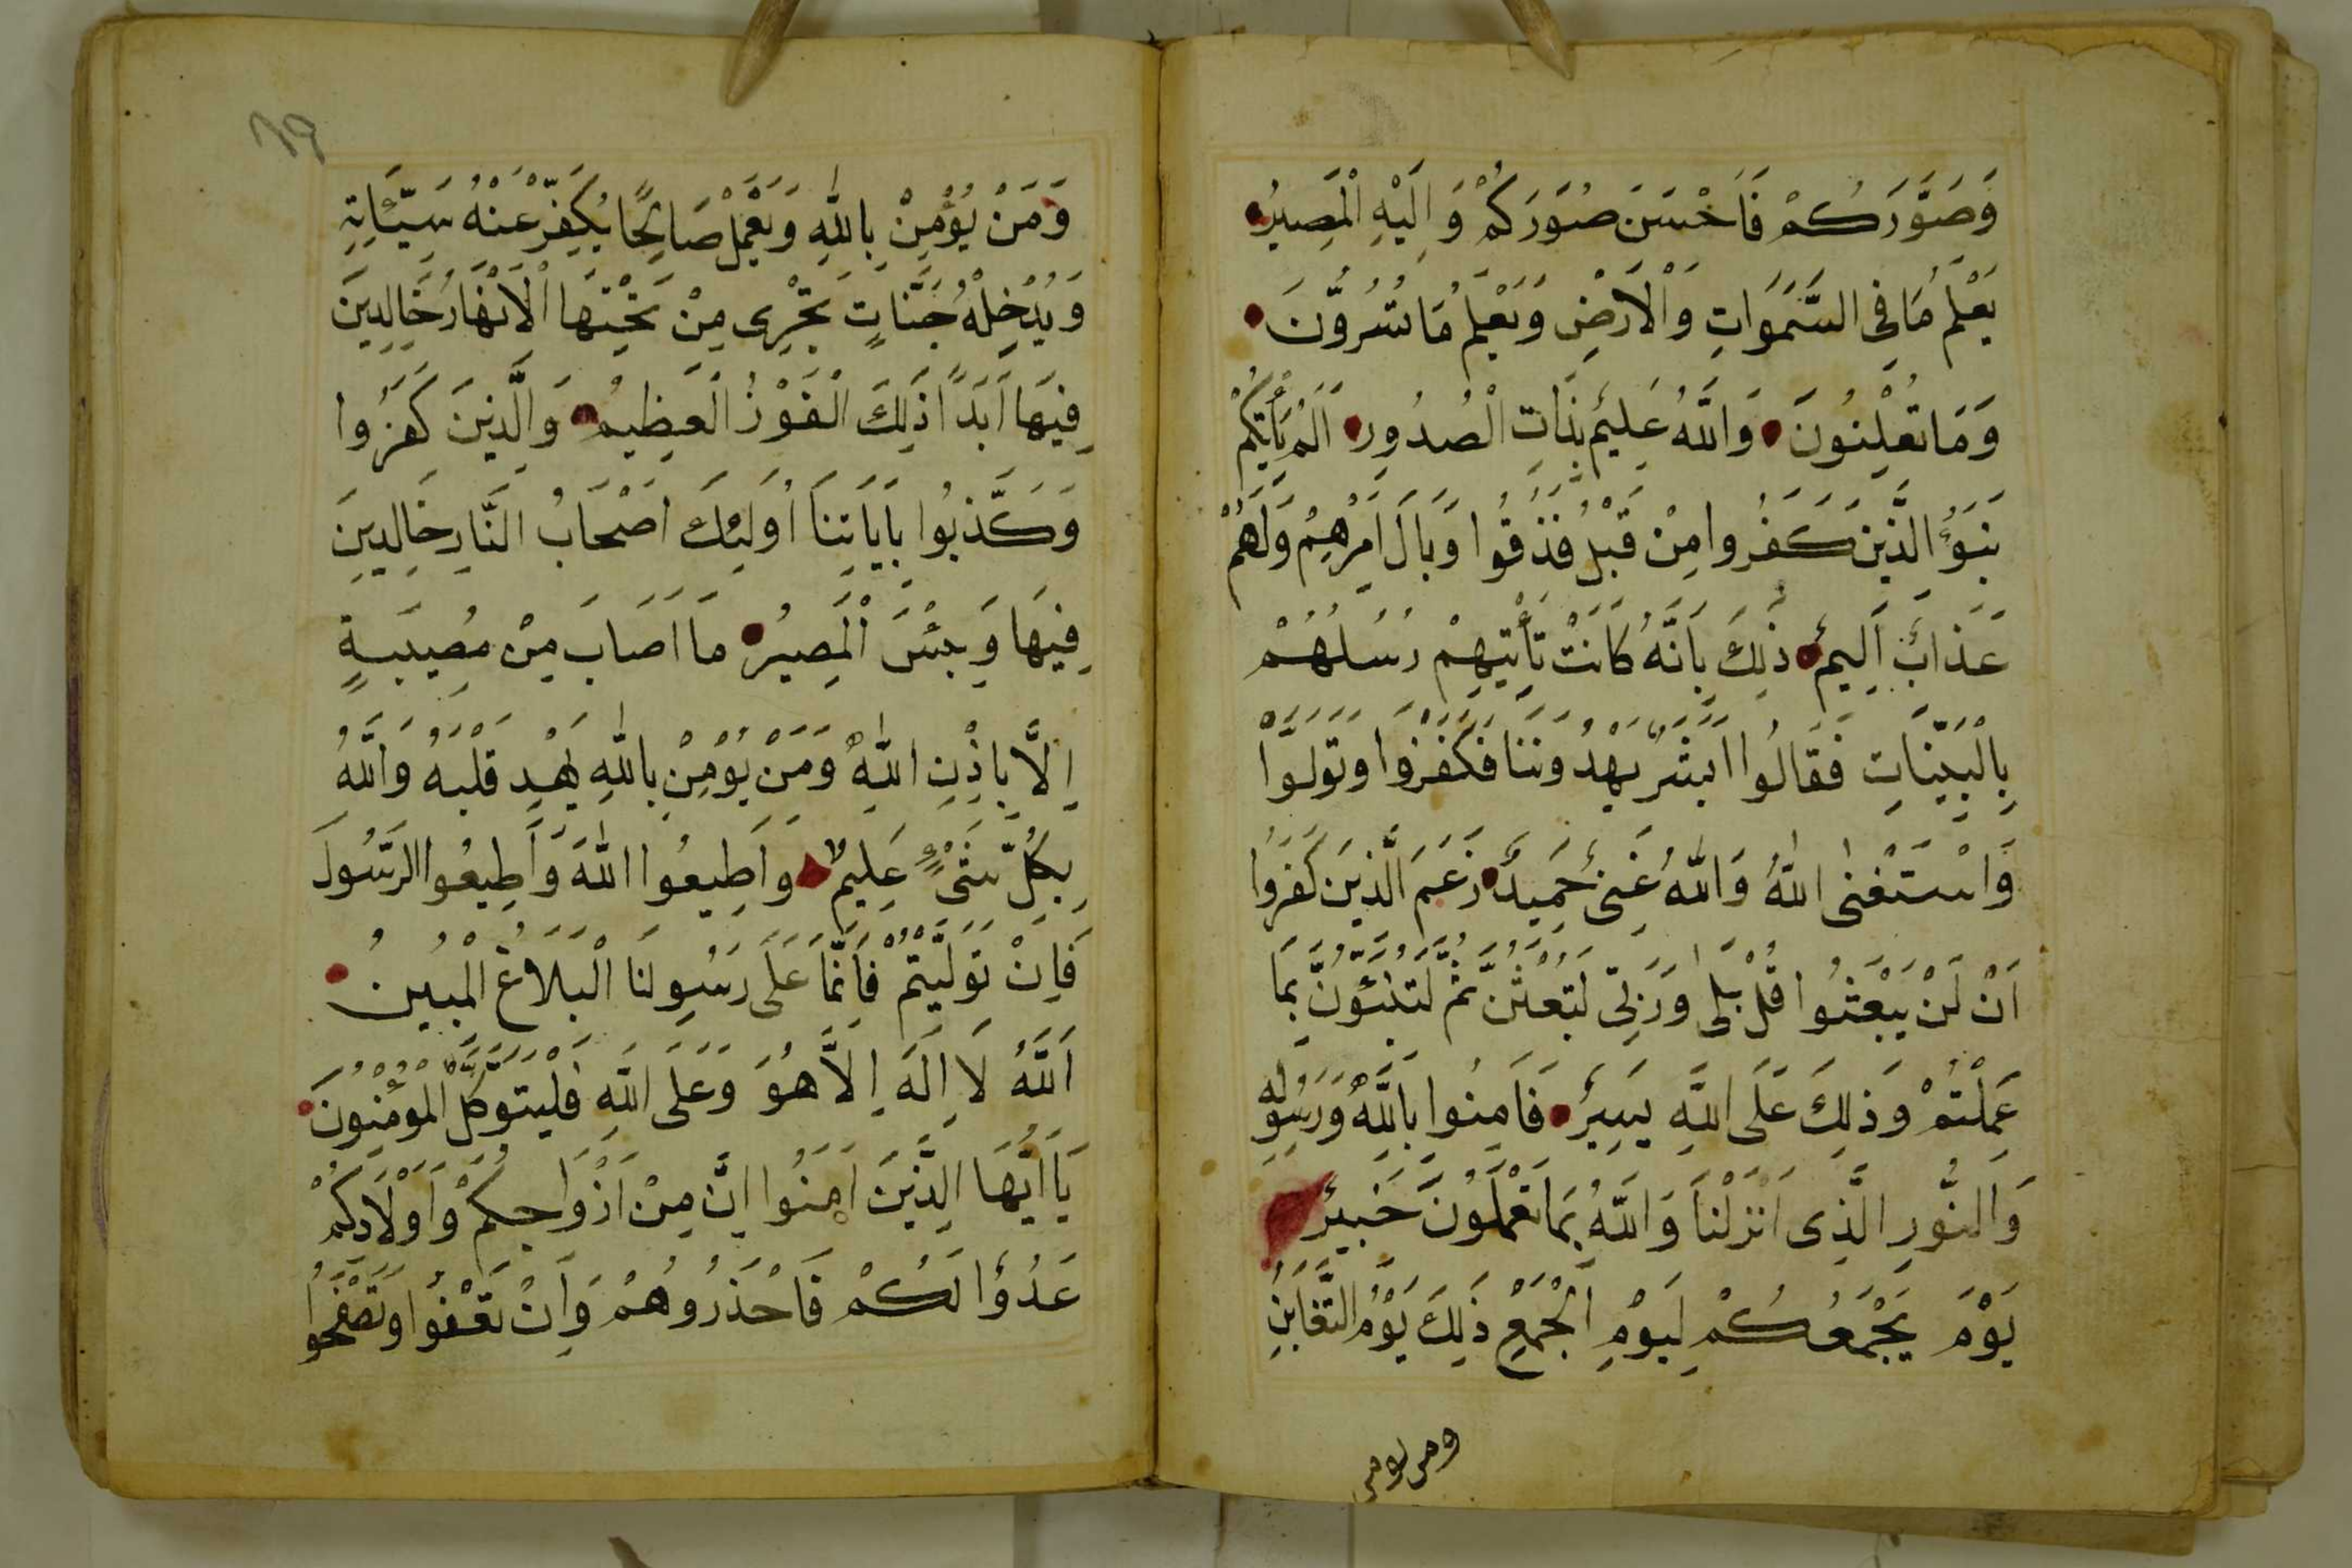 وَصَوَّرَكُمْ فَاَحْسَنَ صُوَرَكُمْ وَاِلَيْهِ الْمَصِيرُ
يَعْلَمُ مَا فِى السَّمَوَاتِ وَالْاَرْضِ وَيَعْلَمُ مَا تُسُرُّونَ
وَمَا تُعْلِنُونَ وَاللّٰهُ عَلِيمٌ بِذَاتِ الْصُدُورِ اَلَمْ يَأْتِكُمْ
نَبَؤُ الَّذِينَ كَفَرُوا مِنْ قَبْلُ فَذَقُوا وَبَالَ اَمْرِهِمْ وَلَهُمْ
عَذَابٌ اَلِيمٌ ذٰلِكَ بِاَنَّهُ كَانَتْ تَأْتِيهِمْ رُسُلُهُمْ
بِالْبَيِّنَاتِ فَقَالُوا اَبَشَرٌ يَهْدُونَنَا فَكَفَرُوا وَتَوَلَّوْا
وَاسْتَغْنٰى اللّٰهُ وَاللّٰهُ غَنِىٌّ حَمِيدٌ زَعَمَ الَّذِينَ كَفَرُوا
اَنْ لَنْ يُبْعَثُوا قُلْ بَلٰى وَرَبِّى لَتُبْعَثُنَّ ثُمَّ لَتُنَبَّؤُنَّ بِمَا
عَمِلْتُمْ وَذٰلِكَ عَلَى اللّٰهِ يَسِيرٌ فَاَمِنُوا بِاللّٰهِ وَرَسُولِهِ
وَالنُّورِ الَّذِى اَنْزَلْنَا وَاللّٰهُ بِمَا تَعْمَلُونَ خَبِيرٌ
يَوْمَ يَجْمَعُكُمْ لِيَوْمِ الْجَمْعِ ذٰلِكَ يَوْمُ التَّغَابُنِ
ومن يومن
٨٩
وَمَنْ يُؤْمِنْ بِاللّٰهِ وَيَعْمَلْ صَالِحًا يُكَفِّرْ عَنْهُ سَيِّئَاتِهِ
وَيُدْخِلْهُ جَنَّاتٍ تَجْرِى مِنْ تَحْتِهَا الْاَنْهَارُ خَالِدِينَ
فِيهَا اَبَدًا ذٰلِكَ الْفَوْزُ الْعَظِيمُ وَالَّذِينَ كَفَرُوا
وَكَذَّبُوا بِاَيَاتِنَا اُولَئِكَ اَصْحَابُ النَّارِ خَالِدِينَ
فِيهَا وَبِئْسَ الْمَصِيرُ مَا اَصَابَ مِنْ مُصِيبَةٍ
اِلَّا بِاِذْنِ اللّٰهِ وَمَنْ يُؤْمِنْ بِاللّٰهِ يَهْدِ قَلْبَهُ وَاللّٰهُ
بِكُلِّ شَىْءٍ عَلِيمٌ وَاَطِيعُوا اللّٰهَ وَاَطِيعُوا الرَّسُولَ
فَاِنْ تَوَلَّيْتُمْ فَاِنَّمَا عَلَى رَسُولِنَا الْبَلَاغُ الْمُبِينُ
اَللّٰهُ لَا اِلَهَ اِلَّا هُوَ وَعَلَى اللّٰهِ فَلْيَتَوَكَّلِ الْمُؤْمِنُونَ
يَا اَيُّهَا الَّذِينَ اَمَنُوا اِنَّ مِنْ اَزْوَاجِكُمْ وَاَوْلَادِكُمْ
عَدُوًّا لَكُمْ فَاحْذَرُوهُمْ وَاِنْ تَعْفُوا وَتَصْفَحُوا